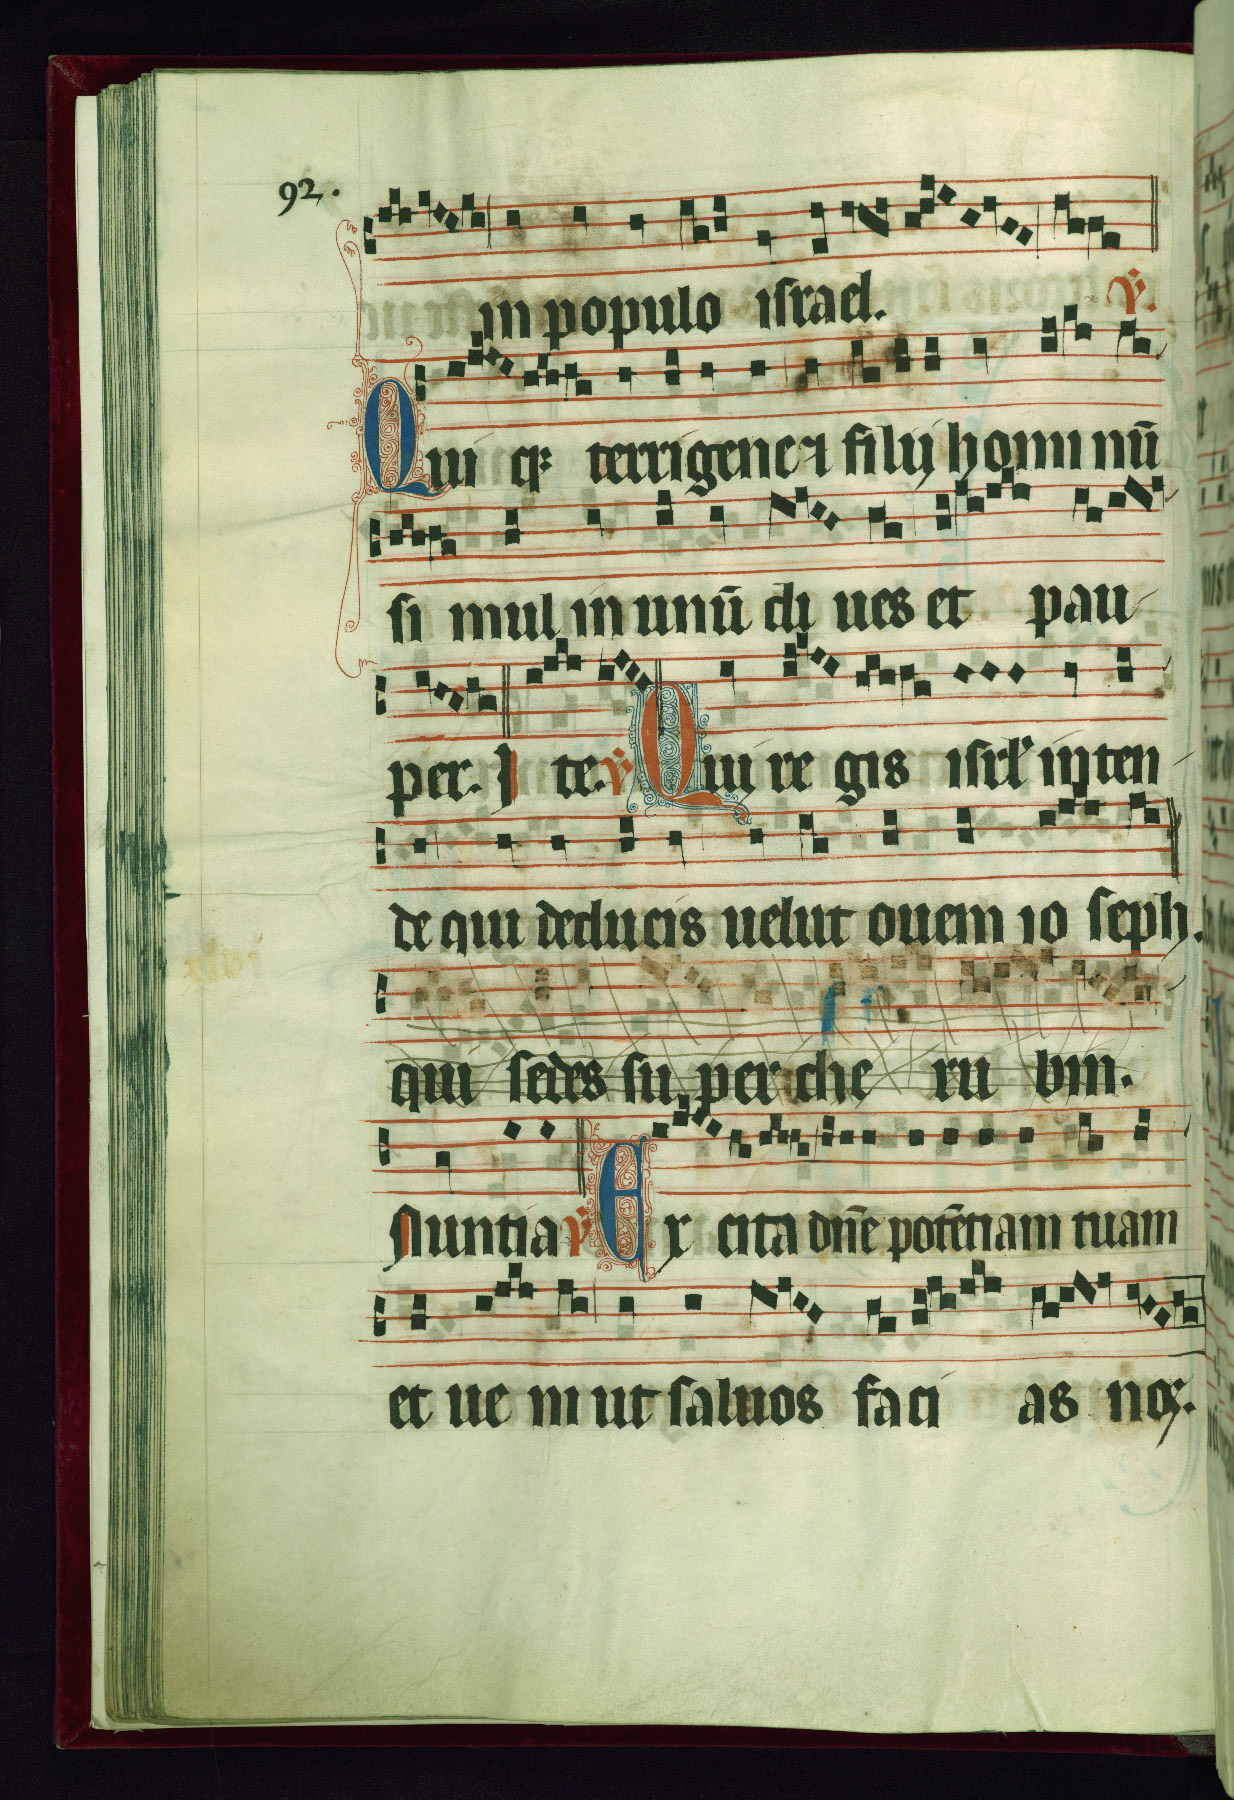 92.
in populo israel. ℣.
Qui q̄ terrigene ⁊ filij hominū
si mul in unū di ues et pau
per. I te. ℣ Qui re gis isrl̄ inten
de qui deducis uelut ouem io seph.
qui sedes su per che ru bin.
Nuntia ℣ Ex cita dn̄e potētiam tuam
et ue ni ut saluos faci as nos.